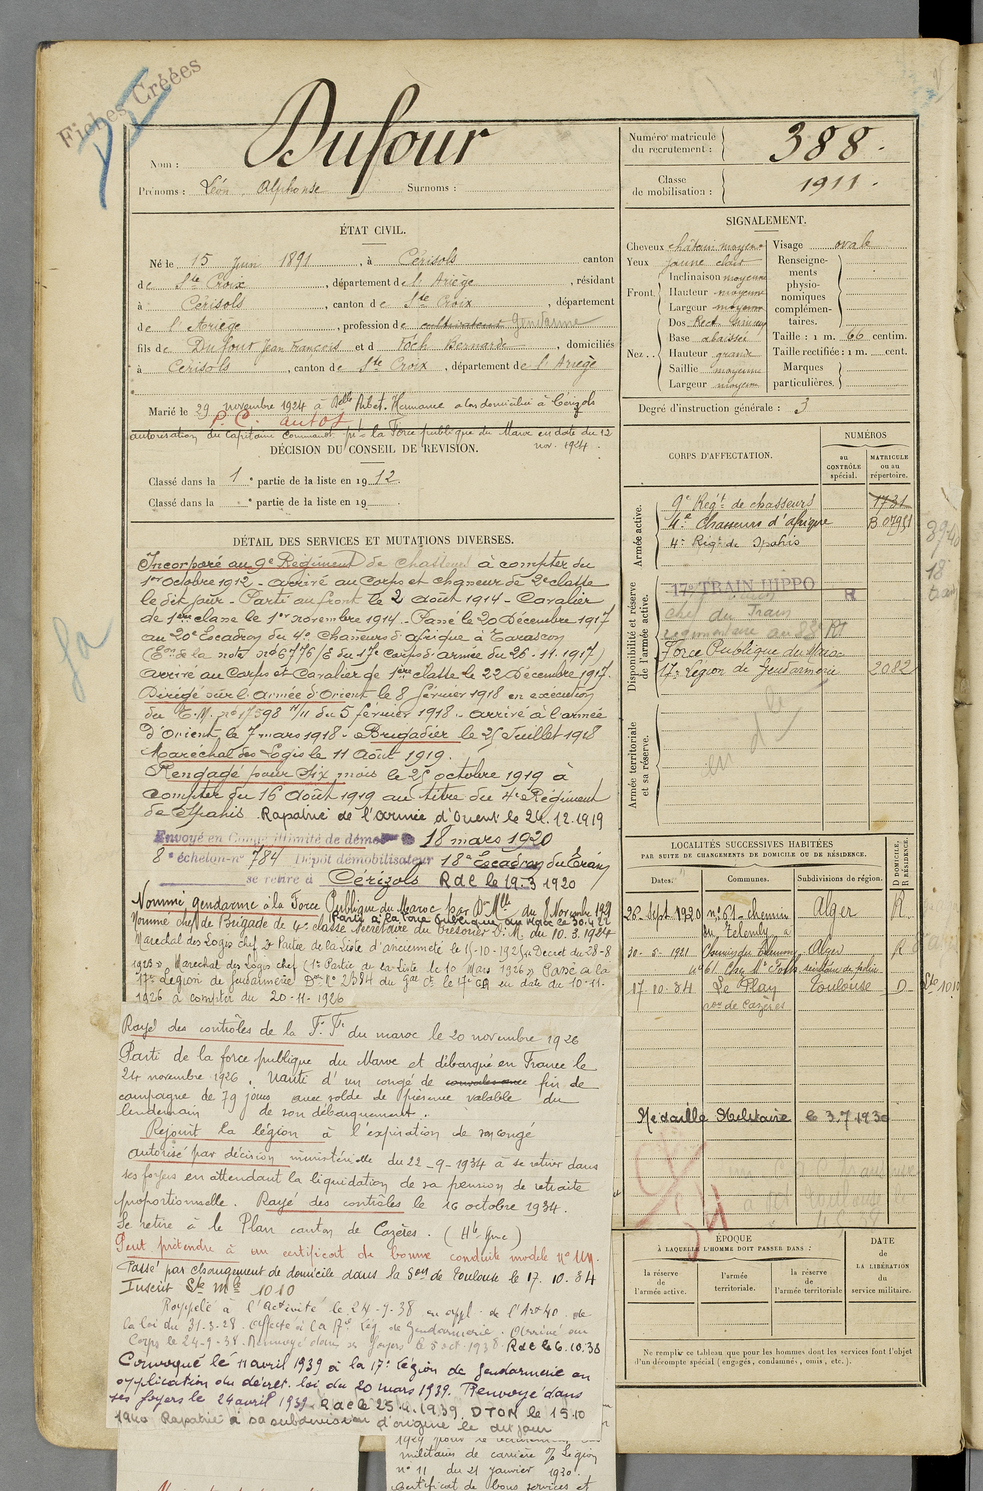 Fiches Créées
Nom : Dufour
Prénoms : Léon Alphonse Surnoms :
Numéro matricule du recrutement : 388.
Classe de mobilisation : 1911.
ÉTAT CIVIL.
Né le 15 Juin 1891, à Cérisols canton
de Ste Croix, département de l'Ariège, résidant
à Cérisols, canton de Ste Croix, département
de l'Ariège, profession de cultivateur Gendarme
fils de Dufour Jean François et de Foch Bernarde, domiciliés
à Cérisols, canton de Ste Croix, département de l'Ariège
Marié le 29 novembre 1924 à Delle Ribet Hermance alors domiciliée à Cérizols
P.C. autos
autorisation du Capitaine Command. la Force publique du Maroc en date du 12
nov. 1924.
DÉCISION DU CONSEIL DE REVISION.
Classé dans la 1e partie de la liste en 1912.
Classé dans la e partie de la liste en 19 .
DÉTAIL DES SERVICES ET MUTATIONS DIVERSES.
Incorporé au 9e Régiment de chasseurs à compter du
1er octobre 1912 - arrivé au Corps et chasseur de 2e classe
le dit jour - Parti au front le 2 août 1914 - Cavalier
de 1ère classe le 1er novembre 1914 - Passé le 20 Décembre 1917
au 20e Escadron du 4e Chasseurs d'afrique à Tarascon
(Eon de la note no 6776/E du 17e corps d'armée du 26-11-1917)
arrivé au Corps et Cavalier de 1ère classe le 22 Décembre 1917.
Dirigé sur l'armée d'Orient le 8 février 1918 en exécution
du T.M. no 17598 du 5 février 1918 - arrivé à l'armée
d'Orient le 7 mars 1918 - Brigadier le 25 Juillet 1918
Maréchal des Logis le 11 Août 1919.
Rengagé pour Six mois le 25 octobre 1919 à
compter du 16 Août 1919 au titre du 4e Régiment
de Spahis. Rapatrié de l'armée d'Orient le 24.12.1919
Envoyé en Congé illimité de démob 18 mars 1920
8e échelon no 784 Dépôt démobilisateur 18e Escadron du Train
se retire à Cérizols RdC le 19-3 1920
Nommé gendarme à la Force Publique du Maroc par Dn Mlle du 8 Novembre 1920
Parti à la force publique du Maroc le 30.4.21
Nommé chef de Brigade de 4e classe Secrétaire du Trésorier D.M. du 10.3.1924
Maréchal des Logis chef 2e Partie de la Liste d'ancienneté le 15-10-1925 Decret du 28-8
1925, Maréchal des Logis chef (1e Partie de la Liste le 10 Mars 1926) Passé à la
17e Légion de Gendarmerie Don no 2384 du Gal Ct le 17e CA en date du 10-11-
1926 à compter du 20-11-1926
Rayé des contrôles de la F. Pe du maroc le 20 novembre 1926
Parti de la force publique du Maroc et débarqué en France le
24 novembre 1926. Nanti d'un congé de convalescence fin de
campagne de 79 jours avec solde de présence valable du
lendemain de son débarquement.
Rejoint la légion à l'expiration de son congé
Autorisé par décision ministérielle du 22-9-1934 à se retirer dans
ses foyers en attendant la liquidation de sa pension de retraite
proportionnelle. Rayé des contrôles le 16 octobre 1934.
Se retire à le Plan canton de Cazères. (Hte Gne)
Peut prétendre à un certificat de bonne conduite modèle no UN.
Passé par changement de domicile dans la Son de Toulouse le 17.10.34
Inscrit Ste Mle 1010
Rappelé à l'activité le 24-9-38 en appl. de l'Art 40 de
la loi du 31-3-28. Affecté à la 17e Lég. de Gendarmerie. Arrivé au
Corps le 24-9-38. Renvoyé dans ses foyers le 5 oct 1938. RdC le 6.10.38
Convoqué le 11 avril 1939 à la 17e légion de Gendarmerie en
application du décret-loi du 20 mars 1939. Renvoyé dans
ses foyers le 24 avril 1939. RdC le 25.4.1939. DTON le 15.10
1940 Rapatrié à sa subdivision d'origine le dit jour
militaire de carrière Légion
no 11 du 21 janvier 1930.
certificat de bons services et
SIGNALEMENT.
Cheveux châtain moyen
Yeux jaune clair
Front. Inclinaison moyenne
Hauteur moyenne
Largeur moyenne
Nez. Dos Rect. sinueux
Base abaissée
Hauteur grande
Saillie moyenne
Largeur moyenne
Visage ovale
Renseignements physionomiques complémentaires.
Taille : 1 m. 66 centim.
Taille rectifiée : 1 m. cent.
Marques particulières.
Degré d'instruction générale : 3
CORPS D'AFFECTATION.
NUMÉROS
au CONTRÔLE spécial.
MATRICULE ou au répertoire.
Armée active.
9e Régt de chasseurs 1731
4e Chasseurs d'afrique B 07951
4e Régt de Spahis
Disponibilité et réserve de l'armée active.
17e TRAIN HIPPO R
chef du Train
Force Publique du Maroc
17e Légion de Gendarmerie 2082
Armée territoriale et sa réserve.
LOCALITÉS SUCCESSIVES HABITÉES
PAR SUITE DE CHANGEMENTS DE DOMICILE OU DE RÉSIDENCE.
Dates. Communes. Subdivisions de région. D DOMICILE, R RÉSIDENCE.
26 Sept. 1920 no 61 chemin Alger R.
du Telemly à
30-5-1921 Alger R
17.10.34 Le Plan Toulouse D. Ste 1010
con de Cazères
Médaille Militaire le 3.7.1930
ÉPOQUE
À LAQUELLE L'HOMME DOIT PASSER DANS :
la réserve de l'armée active.
l'armée territoriale.
la réserve de l'armée territoriale.
DATE de LA LIBÉRATION du service militaire.
Ne remplir ce tableau que pour les hommes dont les services font l'objet
d'un décompte spécial (engagés, condamnés, omis, etc.).